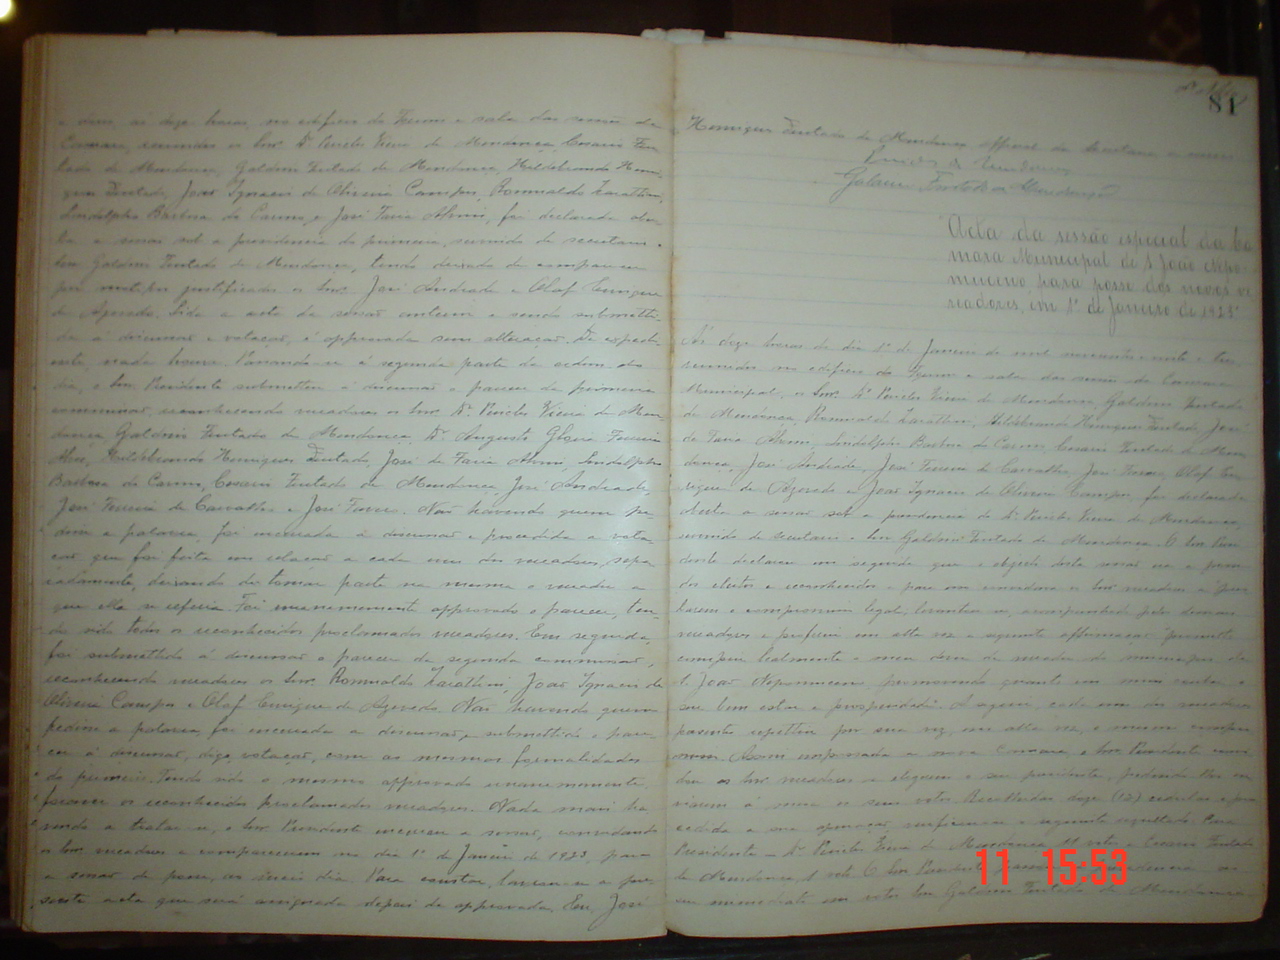 e dous, ás doze horas, no edificio do Forum e sala das sessões da
Camara, reunidos os Snrs. Dr. Pericles Vieira de Mendonça, Cesario Fur-
tado de Mendonça, Galdino Furtado de Mendonça, Hildebrando Henri-
ques Furtado, João Ignacio de Oliveira Campos, Romualdo
Lindolpho Barbosa do Carmo e José Faria Alvim, foi declarada aber-
ta a sessão sob a presidencia do primeiro, servindo de secretario o
Snr. Galdino Furtado de Mendonça, tendo deixado de comparecer
por motivos justificados os Snrs. José Andrade e Olaf Enrigue
de Azevedo. Lida a acta da sessão anterior e sendo submetti-
da á discussão e votação, é approvada sem alteração. De expedi-
ente, nada houve. Passando-se á segunda parte da ordem do
dia, o Snr. Presidente submetteu á discussão o parecer da primeira
commissão, reconhecendo vereadores os Snrs. Dr. Pericles Vieira de Men-
donça, Galdino Furtado de Mendonça, Dr. Augusto Gloria Ferreira
Alves, Hildebrando Henriques Furtado, José de Faria Alvim, Lindolpho
Barbosa do Carmo, Cesario Furtado de Mendonça, José Andrade,
José Ferreira de Carvalho e José Não havendo quem pe-
disse a palavra, foi encerrada a discussão e procedida a vota-
ção que foi feita em relação a cada um dos vereadores, sepa-
radamente, deixando de tomar parte na mesma o vereador a
que ella se referia. Foi unanimemente approvado o parecer, ten-
do sido todos os reconhecidos proclamados vereadores. Em seguida,
foi submettido á discussão o parecer da segunda commissão,
reconhecendo vereadores os Snrs. Romualdo João Ignacio de
Oliveira Campos e Olaf Enrigue de Azevedo. Não havendo quem
pedisse a palavra, foi encerrada a discussão e submettido o pare-
cer á discussão, digo, votação, com as mesmas formalidades
do primeiro. Tendo sido o mesmo approvado unanimemente,
foram os reconhecidos proclamados vereadores. Nada mais ha-
vendo a tratar-se, o Snr. Presidente encerrou a sessão, convidando
os Snrs. vereadores a comparecerem no dia 1º de Janeiro de 1923, para
a sessão de posse, ao meio dia. Para constar, lavrou-se a pre-
sente acta que será assignada depois de approvada. Eu, José
81
Henriques Furtado de Mendonça official da Secretaria a escrevi
Galdino Furtado de Mendonça
Acta da sessão especial da Ca-
mara Municipal de S. João Nepo-
muceno, para posse dos novos ve-
readores, em 1º de Janeiro de 1923
A's doze horas do dia 1º de Janeiro de mil novecentos e vinte e tres,
reunidos no edificio do Forum e sala das sessões da Camara
Municipal, os Snrs. Dr. Pericles Vieira de Mendonça, Galdino Furtado
de Mendonça, Romualdo Hildebrando Henriques Furtado, José
de Faria Alvim, Lindolpho Barbosa do Carmo, Cesario Furtado de Men-
donça, José Andrade, José Ferreira de Carvalho, José Olaf En-
rigue de Azevedo e João Ignacio de Oliveira Campos, foi declarada
aberta a sessão sob a presidencia do Dr. Pericles Vieira de Mendonça,
servindo de secretario o Snr. Galdino Furtado de Mendonça. O Snr. Presi-
dente declarou em seguida que o objecto desta sessão era a posse
dos eleitos e reconhecidos e para isso convidava os Snrs. vereadores a pres-
tarem o compromisso legal, levantou-se, acompanhado pelos demais
vereadores e proferiu em alta voz a seguinte affirmação: "prometto
cumprir lealmente o meu dever de vereador do municipio de
S. João Nepomuceno, promovendo quanto em mim couber o
seu bem estar e prosperidade". A seguir, cada um dos vereadores
presentes repetiu por sua vez, em alta voz, o mesmo compro-
misso. Assim empossada a nova Camara, o Snr. Presidente convi-
dou os Snrs. vereadores a elegerem o seu presidente, pedindo-lhes en-
viassem á mesa os seus votos. Recolhidas doze (12) cedulas e pro-
cedida a sua apuração, verificou-se o seguinte resultado: Para
Presidente - Dr. Pericles Vieira de Mendonça 11 votos e Cesario Furtado
de Mendonça, 1 voto. O Snr. Presidente
immediato em votos Snr. Galdino Furtado de Mendonça
11 15:53